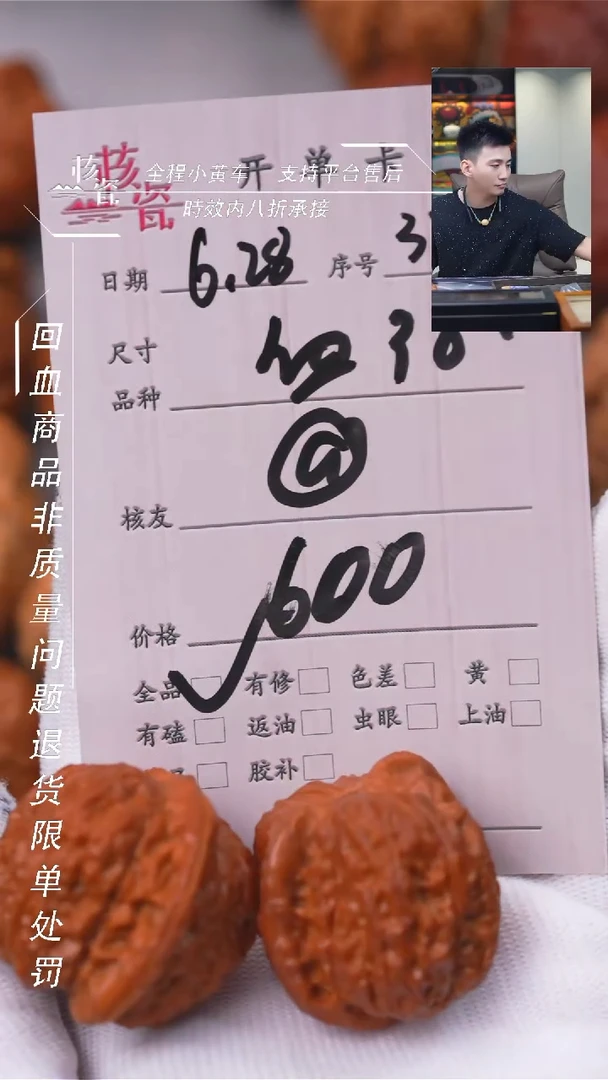 核瓷
开单卡
全程小黄车 支持平台售后
時效内八折承接
日期 6.28 序号
尺寸
品种
核友
价格 600
全品 有修 色差 黄
有磕 返油 虫眼 上油
胶补
回血商品非质量问题退货限单处罚